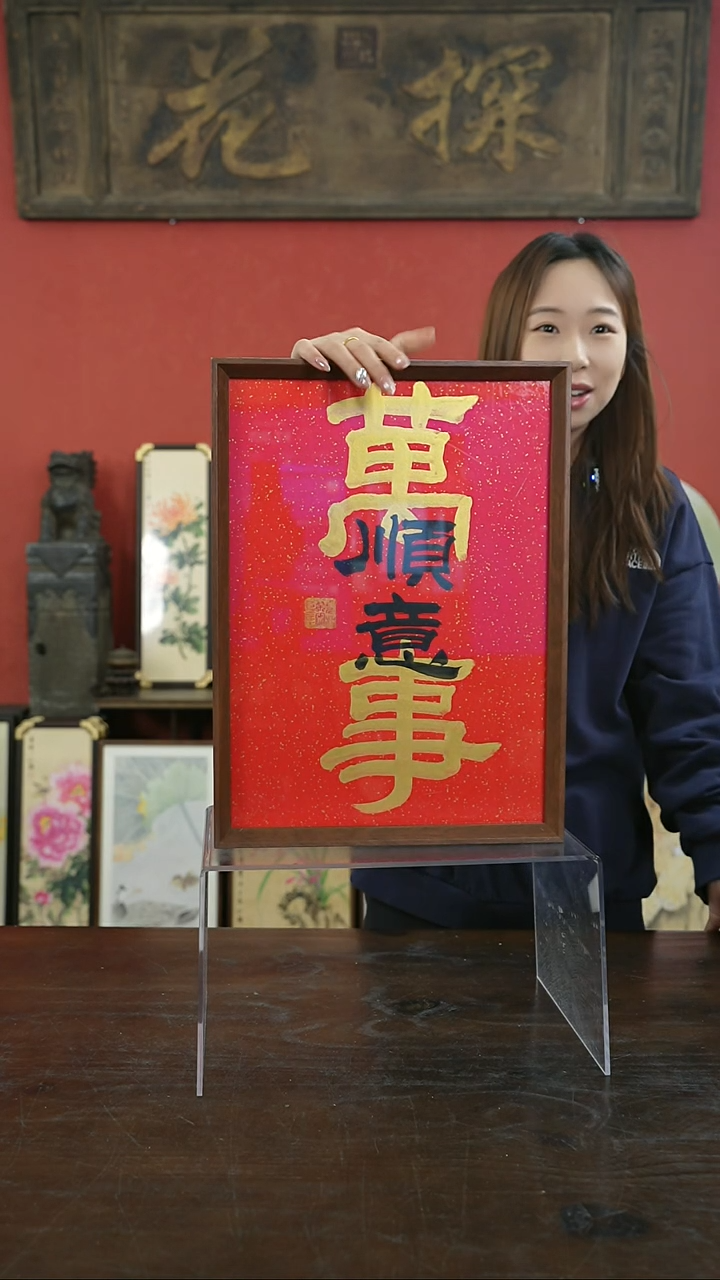 探花
萬順意事